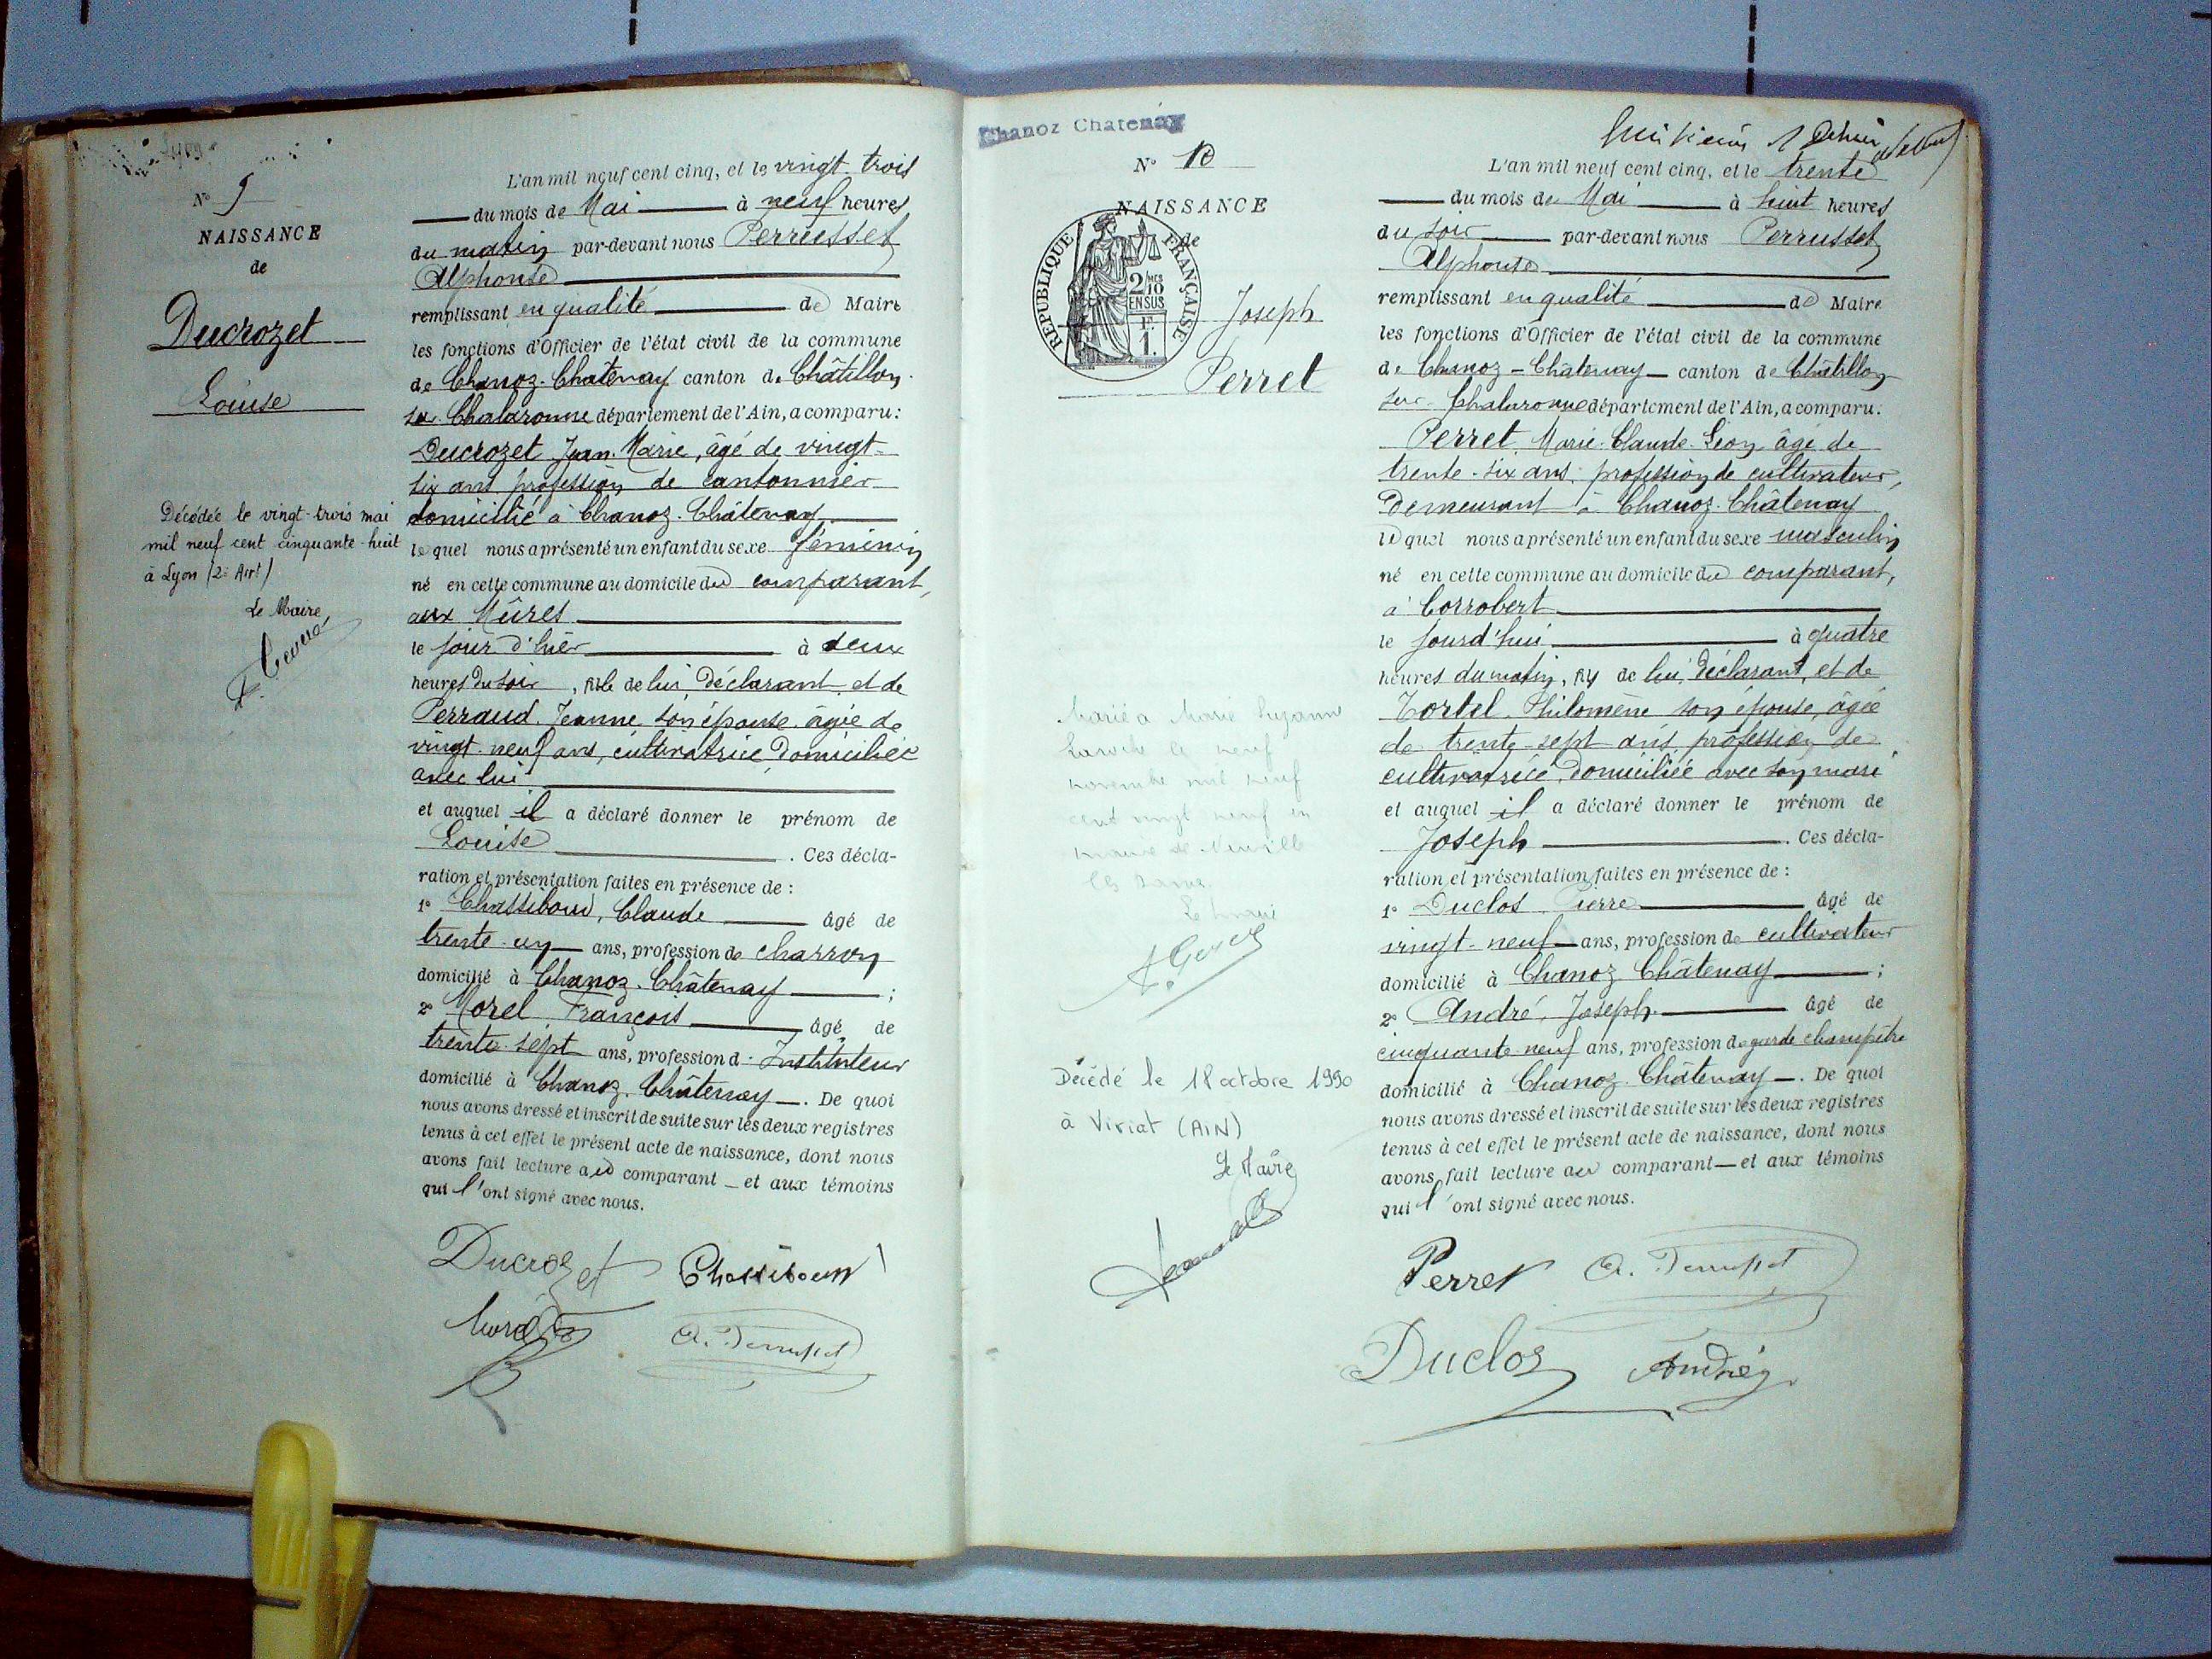 N° 9
NAISSANCE
de
Ducrozet
Louise
Décédée le vingt-trois mai
mil neuf cent cinquante-huit
à Lyon (2e Arrt)
Le Maire,
L'an mil neuf cent cinq, et le vingt-trois
du mois de Mai à neuf heures
du matin par-devant nous Perrusset
Alphonse
remplissant en qualité de Maire
les fonctions d'Officier de l'état civil de la commune
de Chanoz-Châtenay canton de Châtillon-
sur-Chalaronne département de l'Ain, a comparu:
Ducrozet Jean-Marie, âgé de vingt-
six ans profession de cantonnier
domicilié à Chanoz-Châtenay
lequel nous a présenté un enfant du sexe féminin
né en cette commune au domicile du comparant,
aux Mûres
le jour d'hier à deux
heures du soir, fille de lui, déclarant, et de
Perraud Jeanne son épouse âgée de
vingt-neuf ans, cultivatrice domiciliée
avec lui
et auquel il a déclaré donner le prénom de
Louise. Ces décla-
ration et présentation faites en présence de :
1° Chassibout, Claude âgé de
trente-un ans, profession de charron
domicilié à Chanoz-Châtenay ;
2° Morel François âgé de
trente-sept ans, profession d' Instituteur
domicilié à Chanoz-Châtenay. De quoi
nous avons dressé et inscrit de suite sur les deux registres
tenus à cet effet le présent acte de naissance, dont nous
avons fait lecture au comparant et aux témoins
qui l'ont signé avec nous.
Ducrozet
Morel
A. Perrusset
Chanoz Chatenay
N° 10
NAISSANCE
de
RÉPUBLIQUE FRANÇAISE
2/10 MES
EN SUS
1 F.
Joseph
Perret
Marié à Marie Suzanne
le neuf
novembre mil neuf
cent vingt neuf en
mairie de Neuville
les Dames
Le Maire
Décédé le 18 octobre 1990
à Viriat (AIN)
Le Maire
L'an mil neuf cent cinq, et le trente
du mois de Mai à huit heures
du soir par-devant nous Perrusset
Alphonse
remplissant en qualité de Maire
les fonctions d'Officier de l'état civil de la commune
de Chanoz-Châtenay canton de Châtillon
sur-Chalaronne département de l'Ain, a comparu:
Perret Marie-Claude-Léon âgé de
trente-six ans, profession de cultivateur,
demeurant à Chanoz-Châtenay
lequel nous a présenté un enfant du sexe masculin
né en cette commune au domicile du comparant,
à Corrobert
le jourd'hui à quatre
heures du matin, fils de lui, déclarant, et de
Tortel Philomène son épouse, âgée
de trente-sept ans, profession de
cultivatrice, domiciliée avec son mari
et auquel il a déclaré donner le prénom de
Joseph. Ces décla-
ration et présentation faites en présence de :
1° Duclos Pierre âgé de
vingt-neuf ans, profession de cultivateur
domicilié à Chanoz Châtenay ;
2° André, Joseph âgé de
cinquante-neuf ans, profession de garde champêtre
domicilié à Chanoz-Châtenay. De quoi
nous avons dressé et inscrit de suite sur les deux registres
tenus à cet effet le présent acte de naissance, dont nous
avons fait lecture au comparant et aux témoins
qui l'ont signé avec nous.
Perret A. Perrusset
Duclos André